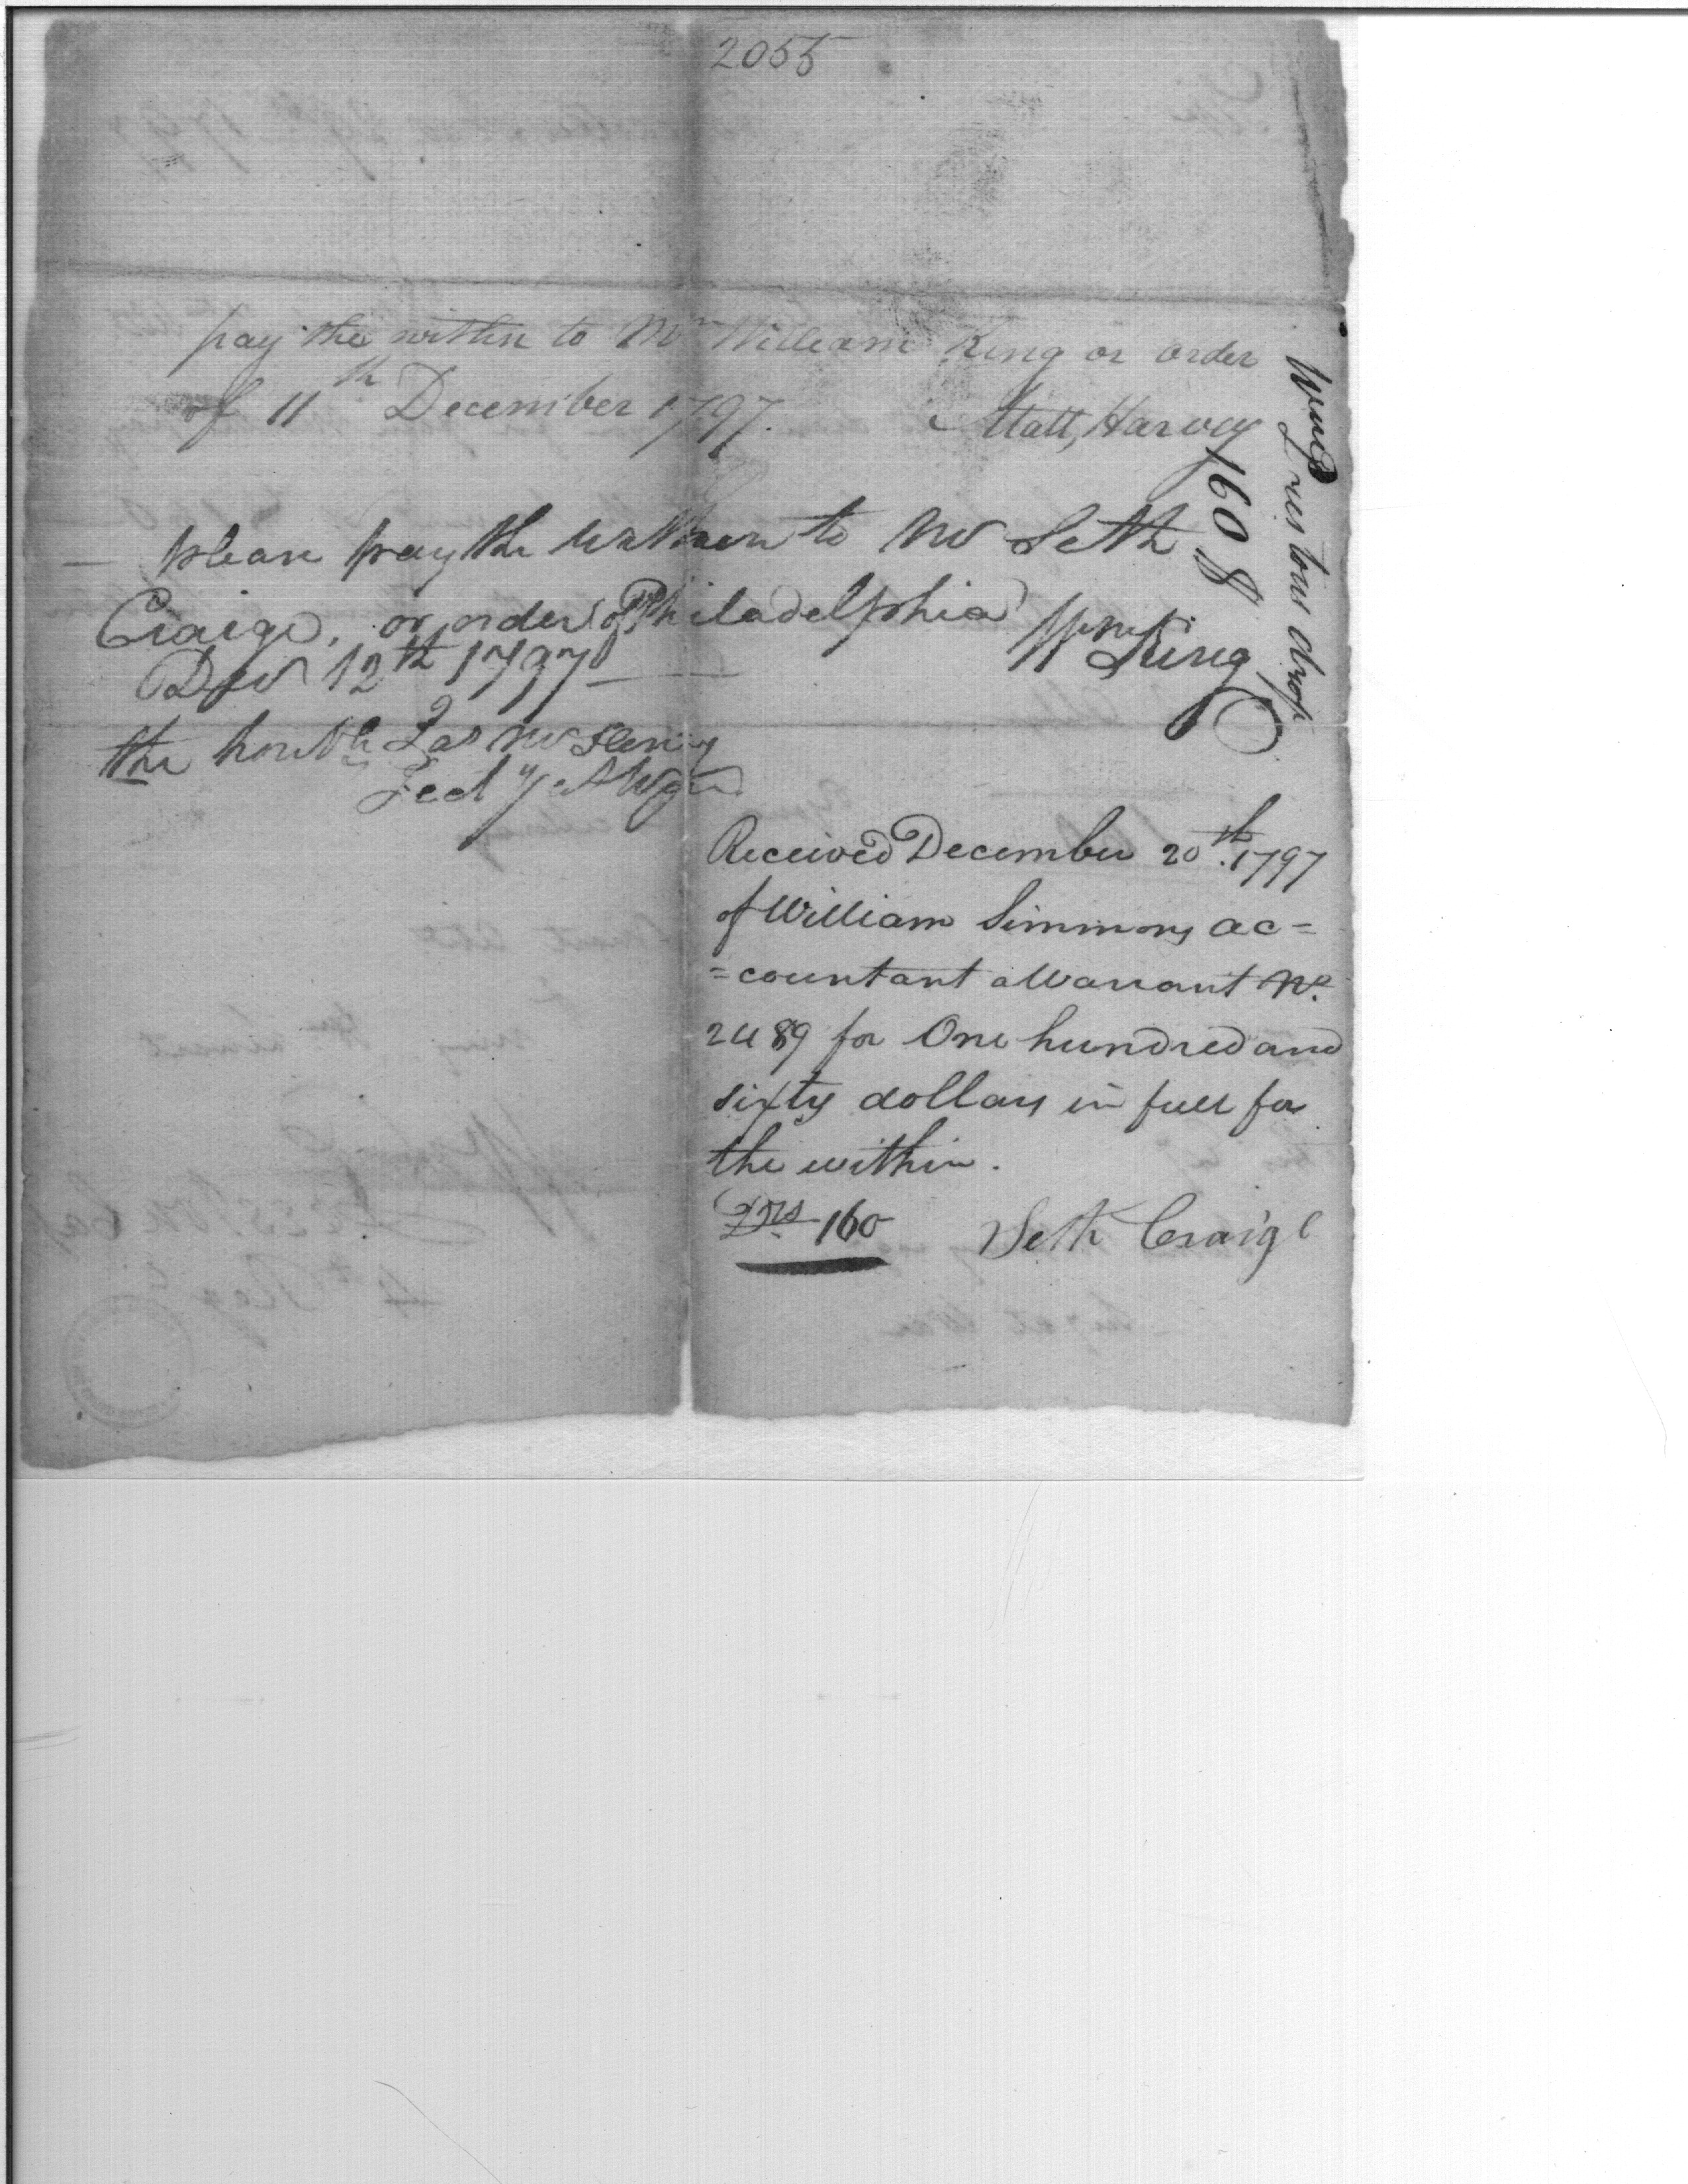 2055
pay the within to Mr William King or order
of 11th December 1797.
Matt, Harvey
please pay the within to Mr Seth
Craige, or order of Philadelphia
Wm King
Dec 12th 1797
the honble Jas McHenry
Secty of War
160 8
Received December 20th. 1797
of William Simmons ac=
=countant a Warrant No.
2489 for One hundred and
sixty dollars in full for
the within.
Drs. 160
Seth Craige